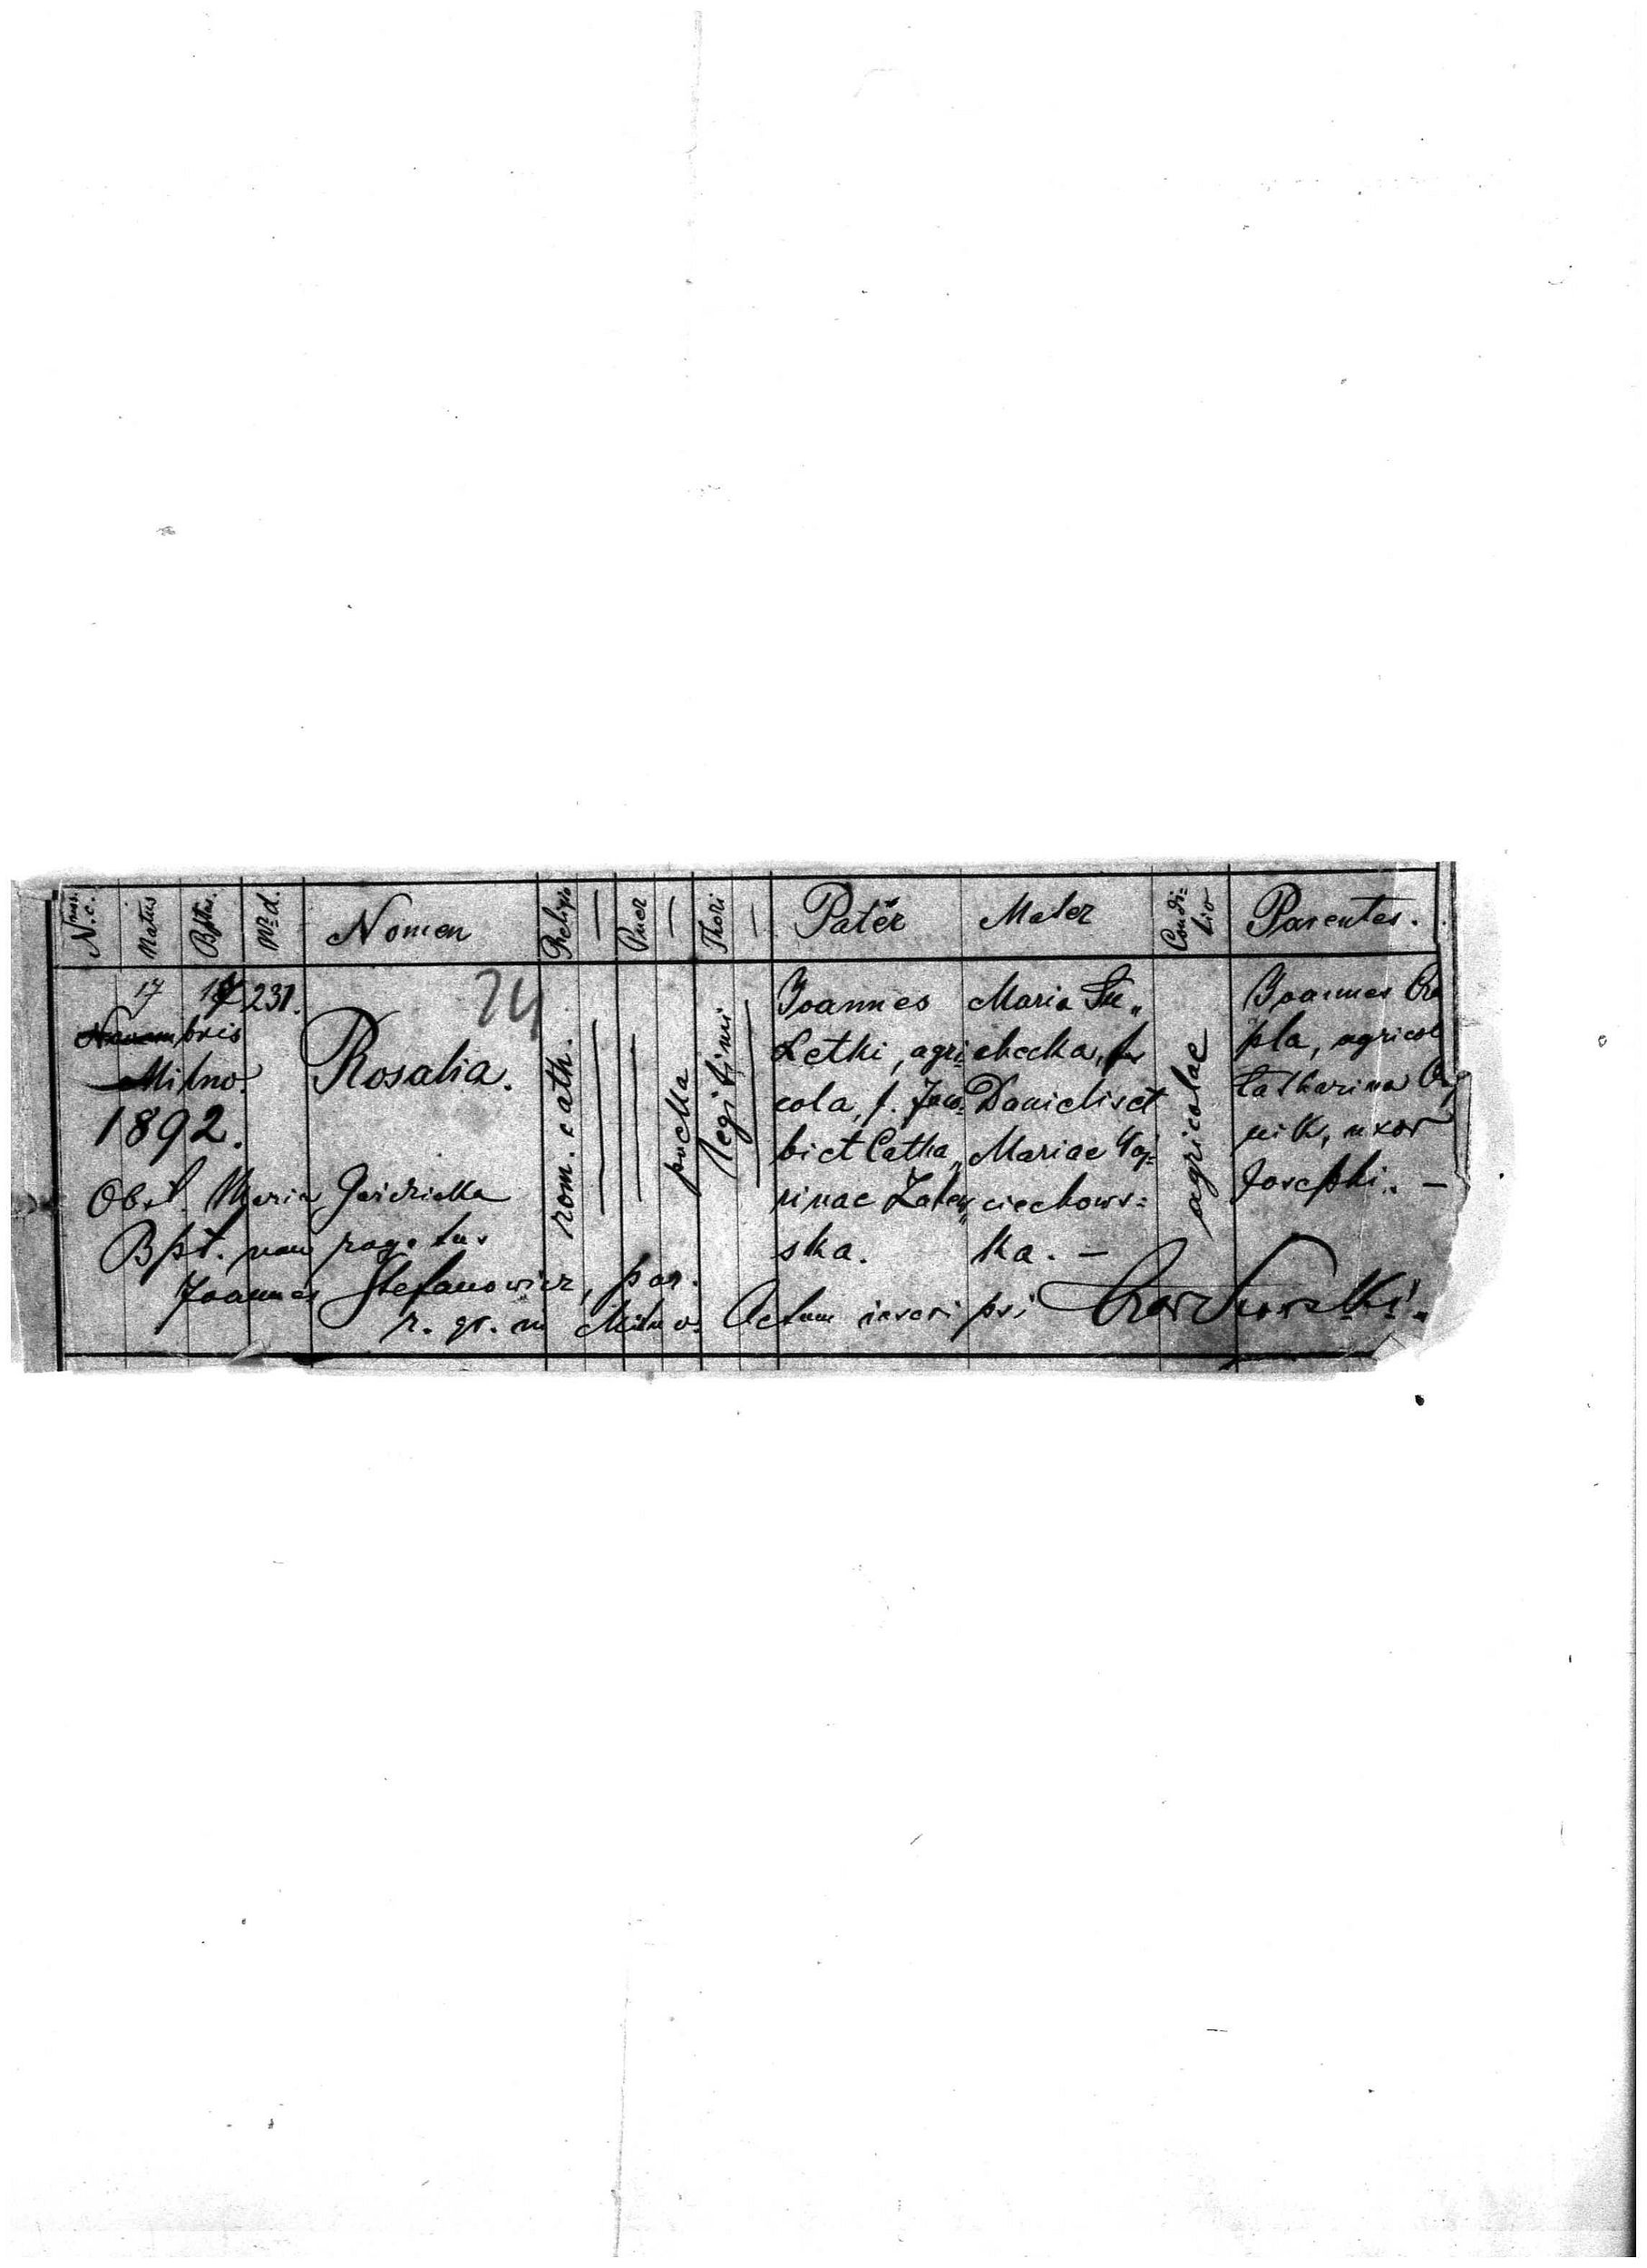 Num. N.c. Natus Bptus. Nr d. Nomen Religio — Puer — Thori — Pater Mater Condi=tio Parentes.
17 17 231. 24
Novembris
Milno.
1892.
Rosalia.
rom. cath.
puella
legitimi
Joannes
Letki, agri=
cola, f. Jaco=
bi et Catha„
rinae Zalew„
ska.
Maria Su„
checka, f.
Danielis et
Mariae Woj=
ciechows=
ka. —
agricolae
Joannes
pla, agricol
Catharina
nik, uxor
Josephi. —
Obst. Maria
Bpt.
Joannes Stefanowicz, par.
r. gr. in Milno. Actum inscripsi